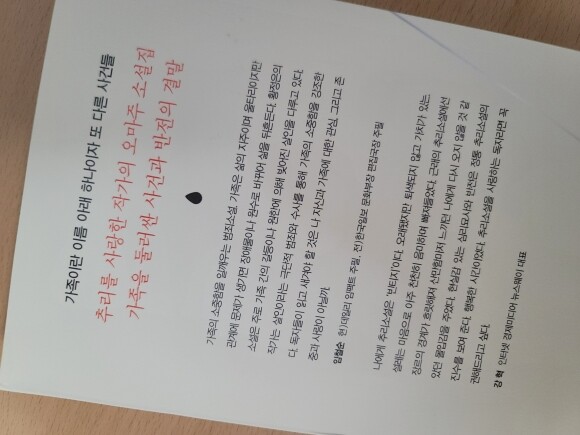 가족이란 이름 아래 하나이자 또 다른 사건들
추리를 사랑한 작가의 오마주 소설집
가족을 둘러싼 사건과 반전의 결말
가족의 소중함을 일깨우는 범죄소설. 가족은 삶의 지주이며 울타리이지만
관계에 문제가 생기면 장애물이나 원수로 바뀌어 삶을 뒤흔든다. 황정은의
소설은 주로 가족 간의 갈등이나 원한에 의해 빚어진 살인을 다루고 있다.
작가는 살인이라는 극단적 범죄와 수사를 통해 가족의 소중함을 강조한
다. 독자들이 읽고 새겨야 할 것은 나 자신과 가족에 대한 관심, 그리고 존
중과 사랑이 아닐까.
임철순 현)데일리 임팩트 주필, 전)한국일보 문화부장 편집국장 주필
나에게 추리소설은 '빈티지'이다. 오래됐지만 퇴색되지 않고 가치가 있는
설레는 마음으로 아주 천천히 음미하며 빠져들었다. 근래의 추리소설에선
장르의 경계가 흐릿해져 산만함마저 느끼던 나에게 다시 오지 않을 것 같
았던 몰입감을 주었다. 현실감 있는 심리묘사와 반전은 정통 추리소설의
진수를 보여 준다. 행복한 시간이었다. 추리소설을 사랑하는 독자라면 꼭
권해드리고 싶다.
강 혁 인터넷 경제미디어 뉴스웨이 대표